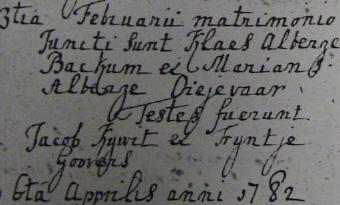 3tia Februarii matrimonio
Juncti sunt Klaes Alberze
Backum et Marians
Alberze Oiejevaar
Testes fuerunt
Jacob Kywit et Tryntje
Goovers
6ta Apprilis anni 1782